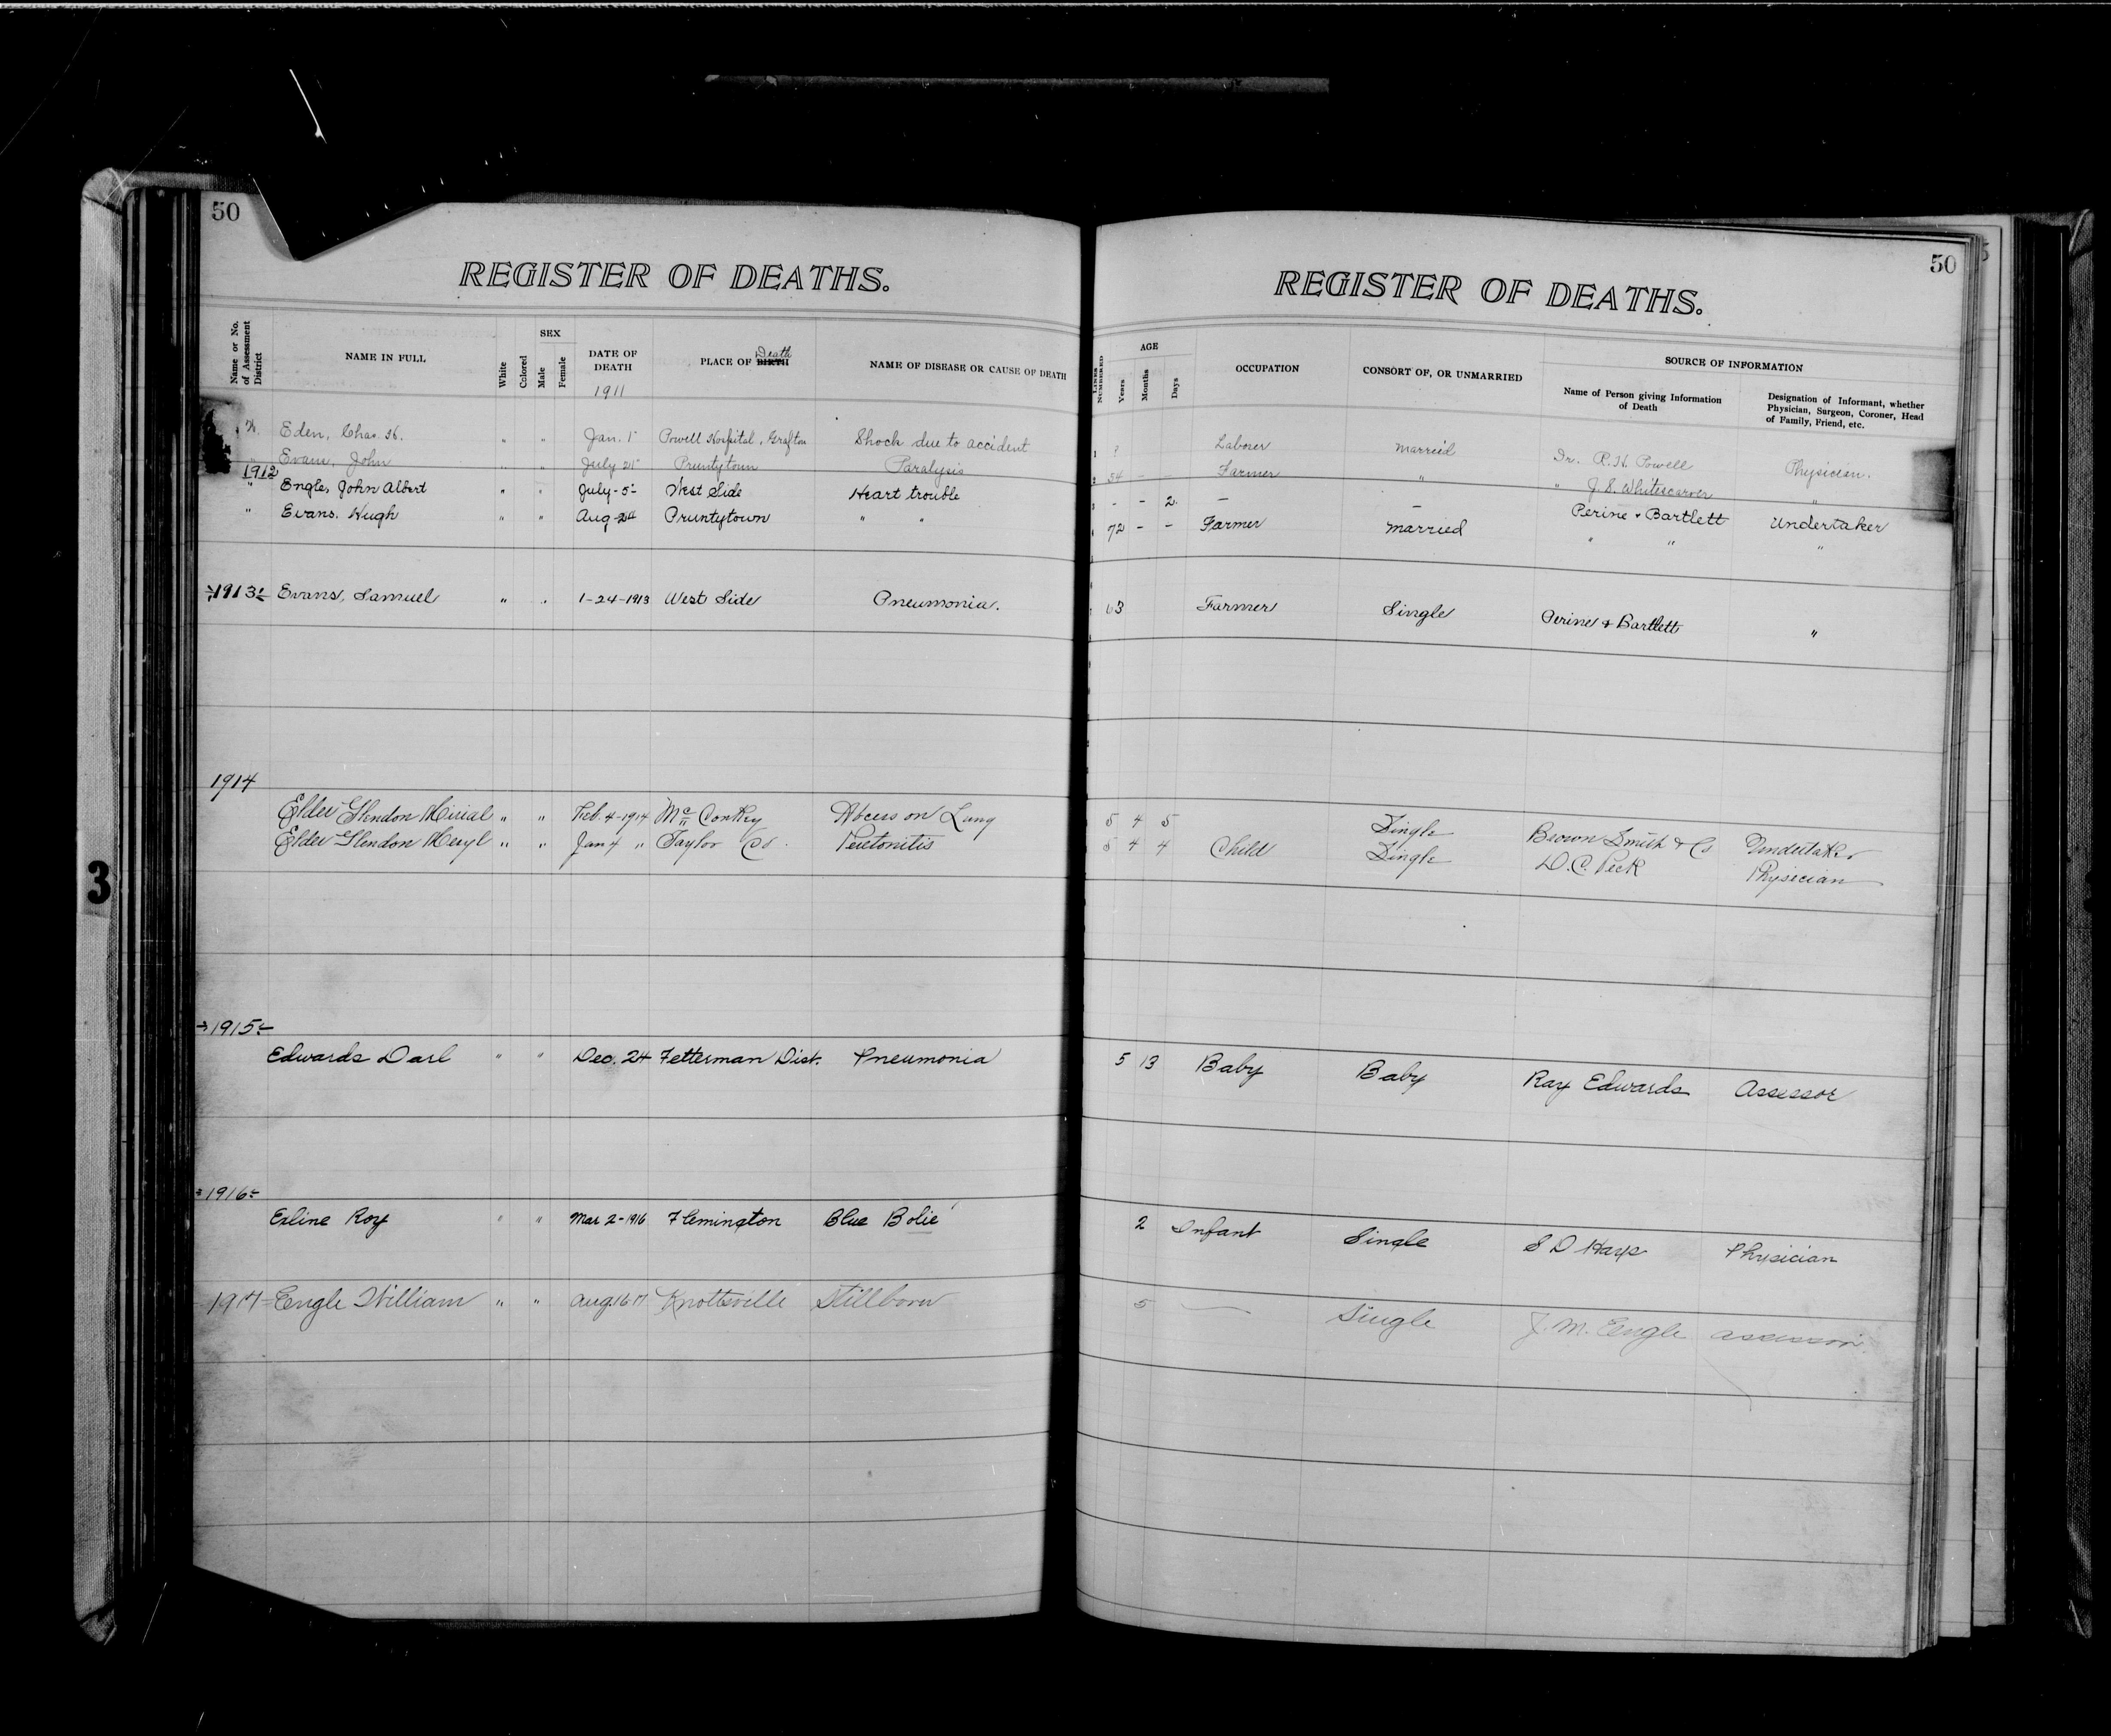 50
REGISTER OF DEATHS.
Name or No. of Assessment District
NAME IN FULL
White
Colored
SEX
Male
Female
DATE OF DEATH
1911
PLACE OF BIRTH Death
NAME OF DISEASE OR CAUSE OF DEATH
Eden, Chas. H. " " Jan. 1 Powell Hospital, Grafton Shock due to accident
" Evans, John " " July 21 Pruntytown Paralysis
1912
" Engle, John Albert " " July-5- West Side Heart trouble
" Evans, Hugh " " Aug Pruntytown " "
1913 Evans, Samuel " " 1-24-1913 West Side Pneumonia.
1914
Elder Glendon " " Feb. 4-1914 Mc Conkey Abcess on Lung
Elder Glendon Meryl " " Jan 4 " Taylor Co. Peretonitis
1915
Edwards Darl " " Dec. 24 Fetterman Dist. Pneumonia
1916
Exline Roy " " Mar 2-1916 Flemington Blue Bolie
1917 Engle William " " Aug 16 17 Knottsville Stillborn
3
50
REGISTER OF DEATHS.
LINES NUMBERED
AGE
Years
Months
Days
OCCUPATION
CONSORT OF, OR UNMARRIED
SOURCE OF INFORMATION
Name of Person giving Information of Death
Designation of Informant, whether Physician, Surgeon, Coroner, Head of Family, Friend, etc.
? Laborer Married Dr. P. H. Powell Physician.
54 - Farmer " " J. S. Whitescarver "
- - 2 - - Perine & Bartlett Undertaker
72 - - Farmer Married " " "
63 Farmer Single Perine & Bartlett "
5 4 5 Single Brown Smith & Co Undertaker
5 4 4 Child Single D. C. Peck Physician
5 13 Baby Baby Ray Edwards Assessor
2 Infant Single S D Hays Physician
5 — Single J. M. Engle assessor